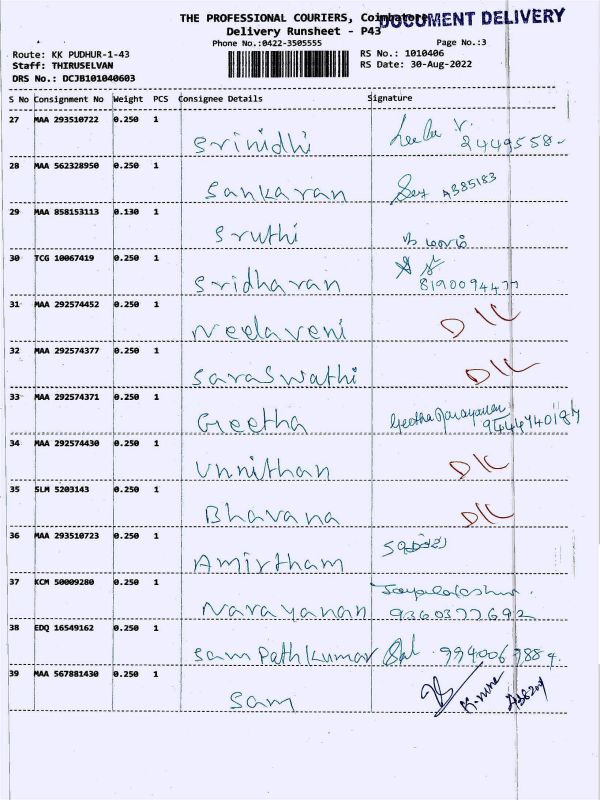 THE PROFESSIONAL COURIERS, Coimbatore
DOCUMENT DELIVERY
Delivery Runsheet - P43
Phone No.:0422-3505555
Page No.:3
Route: KK PUDHUR-1-43
RS No.: 1010406
Staff: THIRUSELVAN
RS Date: 30-Aug-2022
DRS No.: DCJB101040603
S No Consignment No Weight PCS Consignee Details Signature
27 MAA 293510722 0.250 1 Srinidhi
2449558-
28 MAA 562328950 0.250 1 Sankaran
A385183
29 MAA 858153113 0.130 1 Sruthi
30 TCG 10067419 0.250 1 Sridharan
8190094477
31 MAA 292574452 0.250 1 Neelaveni D/L
32 MAA 292574377 0.250 1 Saraswathi D/L
33 MAA 292574371 0.250 1 Geetha Geetha Narayanan
34 MAA 292574430 0.250 1 Unnithan D/L
35 SLM 5203143 0.250 1 Bhavana D/L
36 MAA 293510723 0.250 1 Amirtham
37 KCM 50009280 0.250 1 Narayanan
9360377692
38 EDQ 16549162 0.250 1 Sampathkumar
39 MAA 567881430 0.250 1 Sam